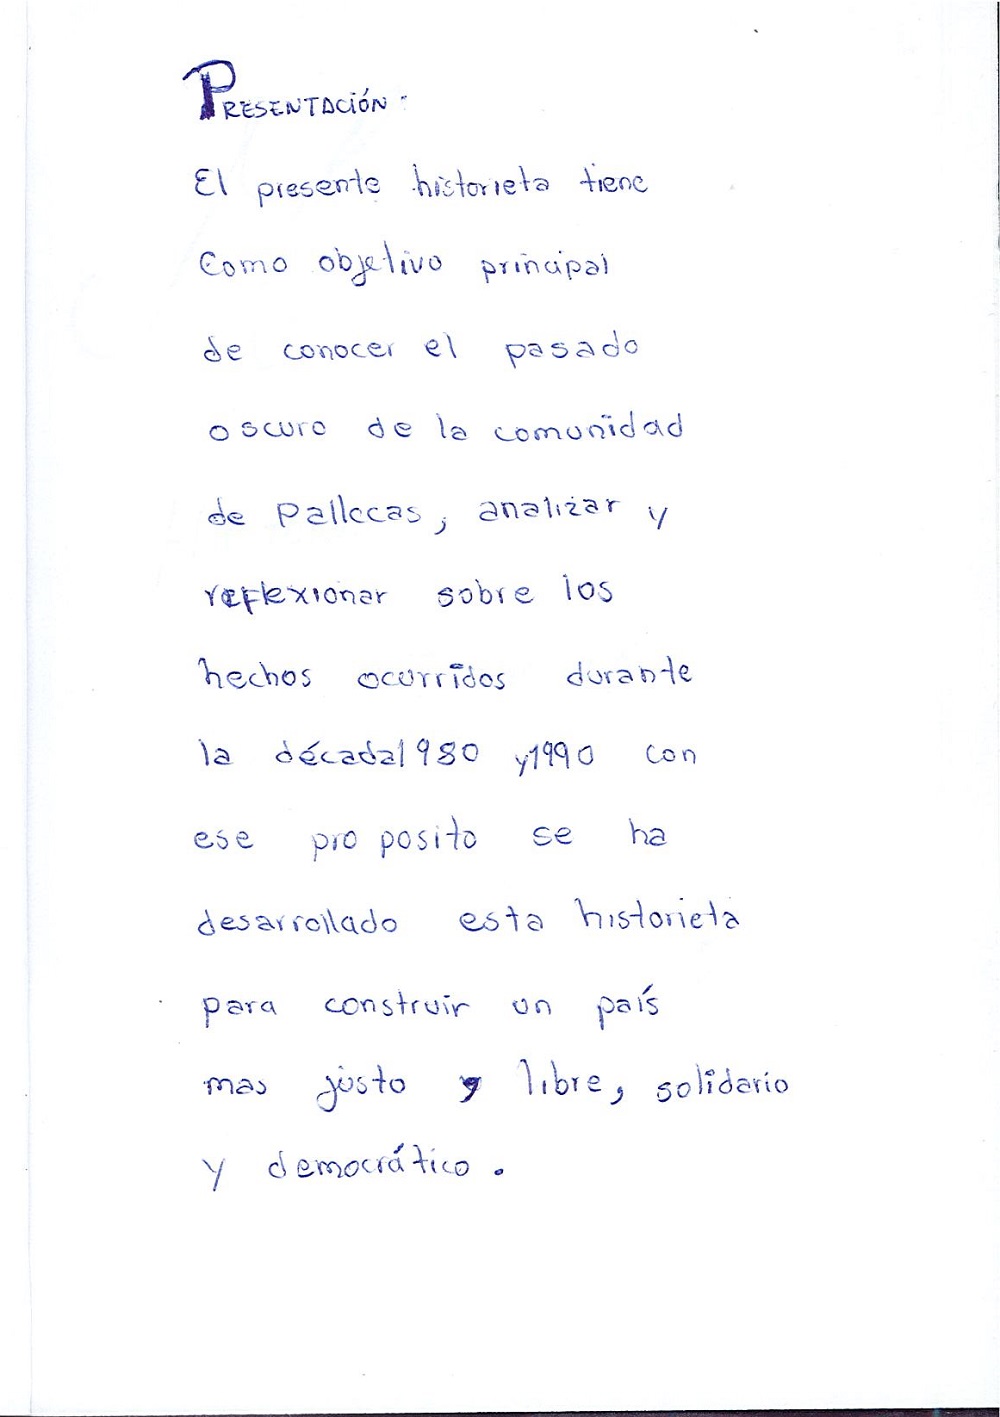 PRESENTACIÓN -
El presente historieta tiene
Como objetivo principal
de conocer el pasado
oscuro de la comunidad
de Pallccas, analizar y
reflexionar sobre los
hechos ocurridos durante
la década 1980 y 1990 con
ese pro posito se ha
desarrollado esta historieta
para construir un país
mas justo y libre, solidario
y democrático.